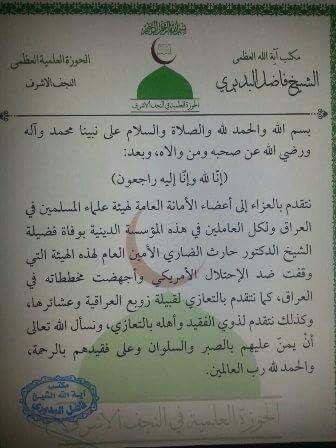 بسم الله الرحمن الرحيم
مكتب آية الله العظمى
الشيخ فاضل البديري
الحوزة العلمية العظمى
النجف الاشرف
الحوزة العلمية في النجف الاشرف
بسم الله والحمد لله والصلاة والسلام على نبينا محمد وآله
ورضي الله عن صحبه ومن والاه، وبعد:
(إنّا لله وإنّا إليه راجعون)
نتقدم بالعزاء إلى أعضاء الأمانة العامة لهيئة علماء المسلمين في
العراق ولكل العاملين في هذه المؤسسة الدينية بوفاة فضيلة
الشيخ الدكتور حارث الضاري الأمين العام لهذه الهيئة التي
وقفت ضد الإحتلال الأمريكي وأجهضت مخططاته في
العراق، كما نتقدم بالتعازي لقبيلة زوبع العراقية وعشائرها،
وكذلك نتقدم لذوي الفقيد وأهله بالتعازي، ونسأل الله تعالى
أن يمنّ عليهم بالصبر والسلوان وعلى فقيدهم بالرحمة،
والحمد لله رب العالمين.
مكتب
آية الله الشيخ
فاضل البديري
الحوزة العلمية في النجف الاشرف